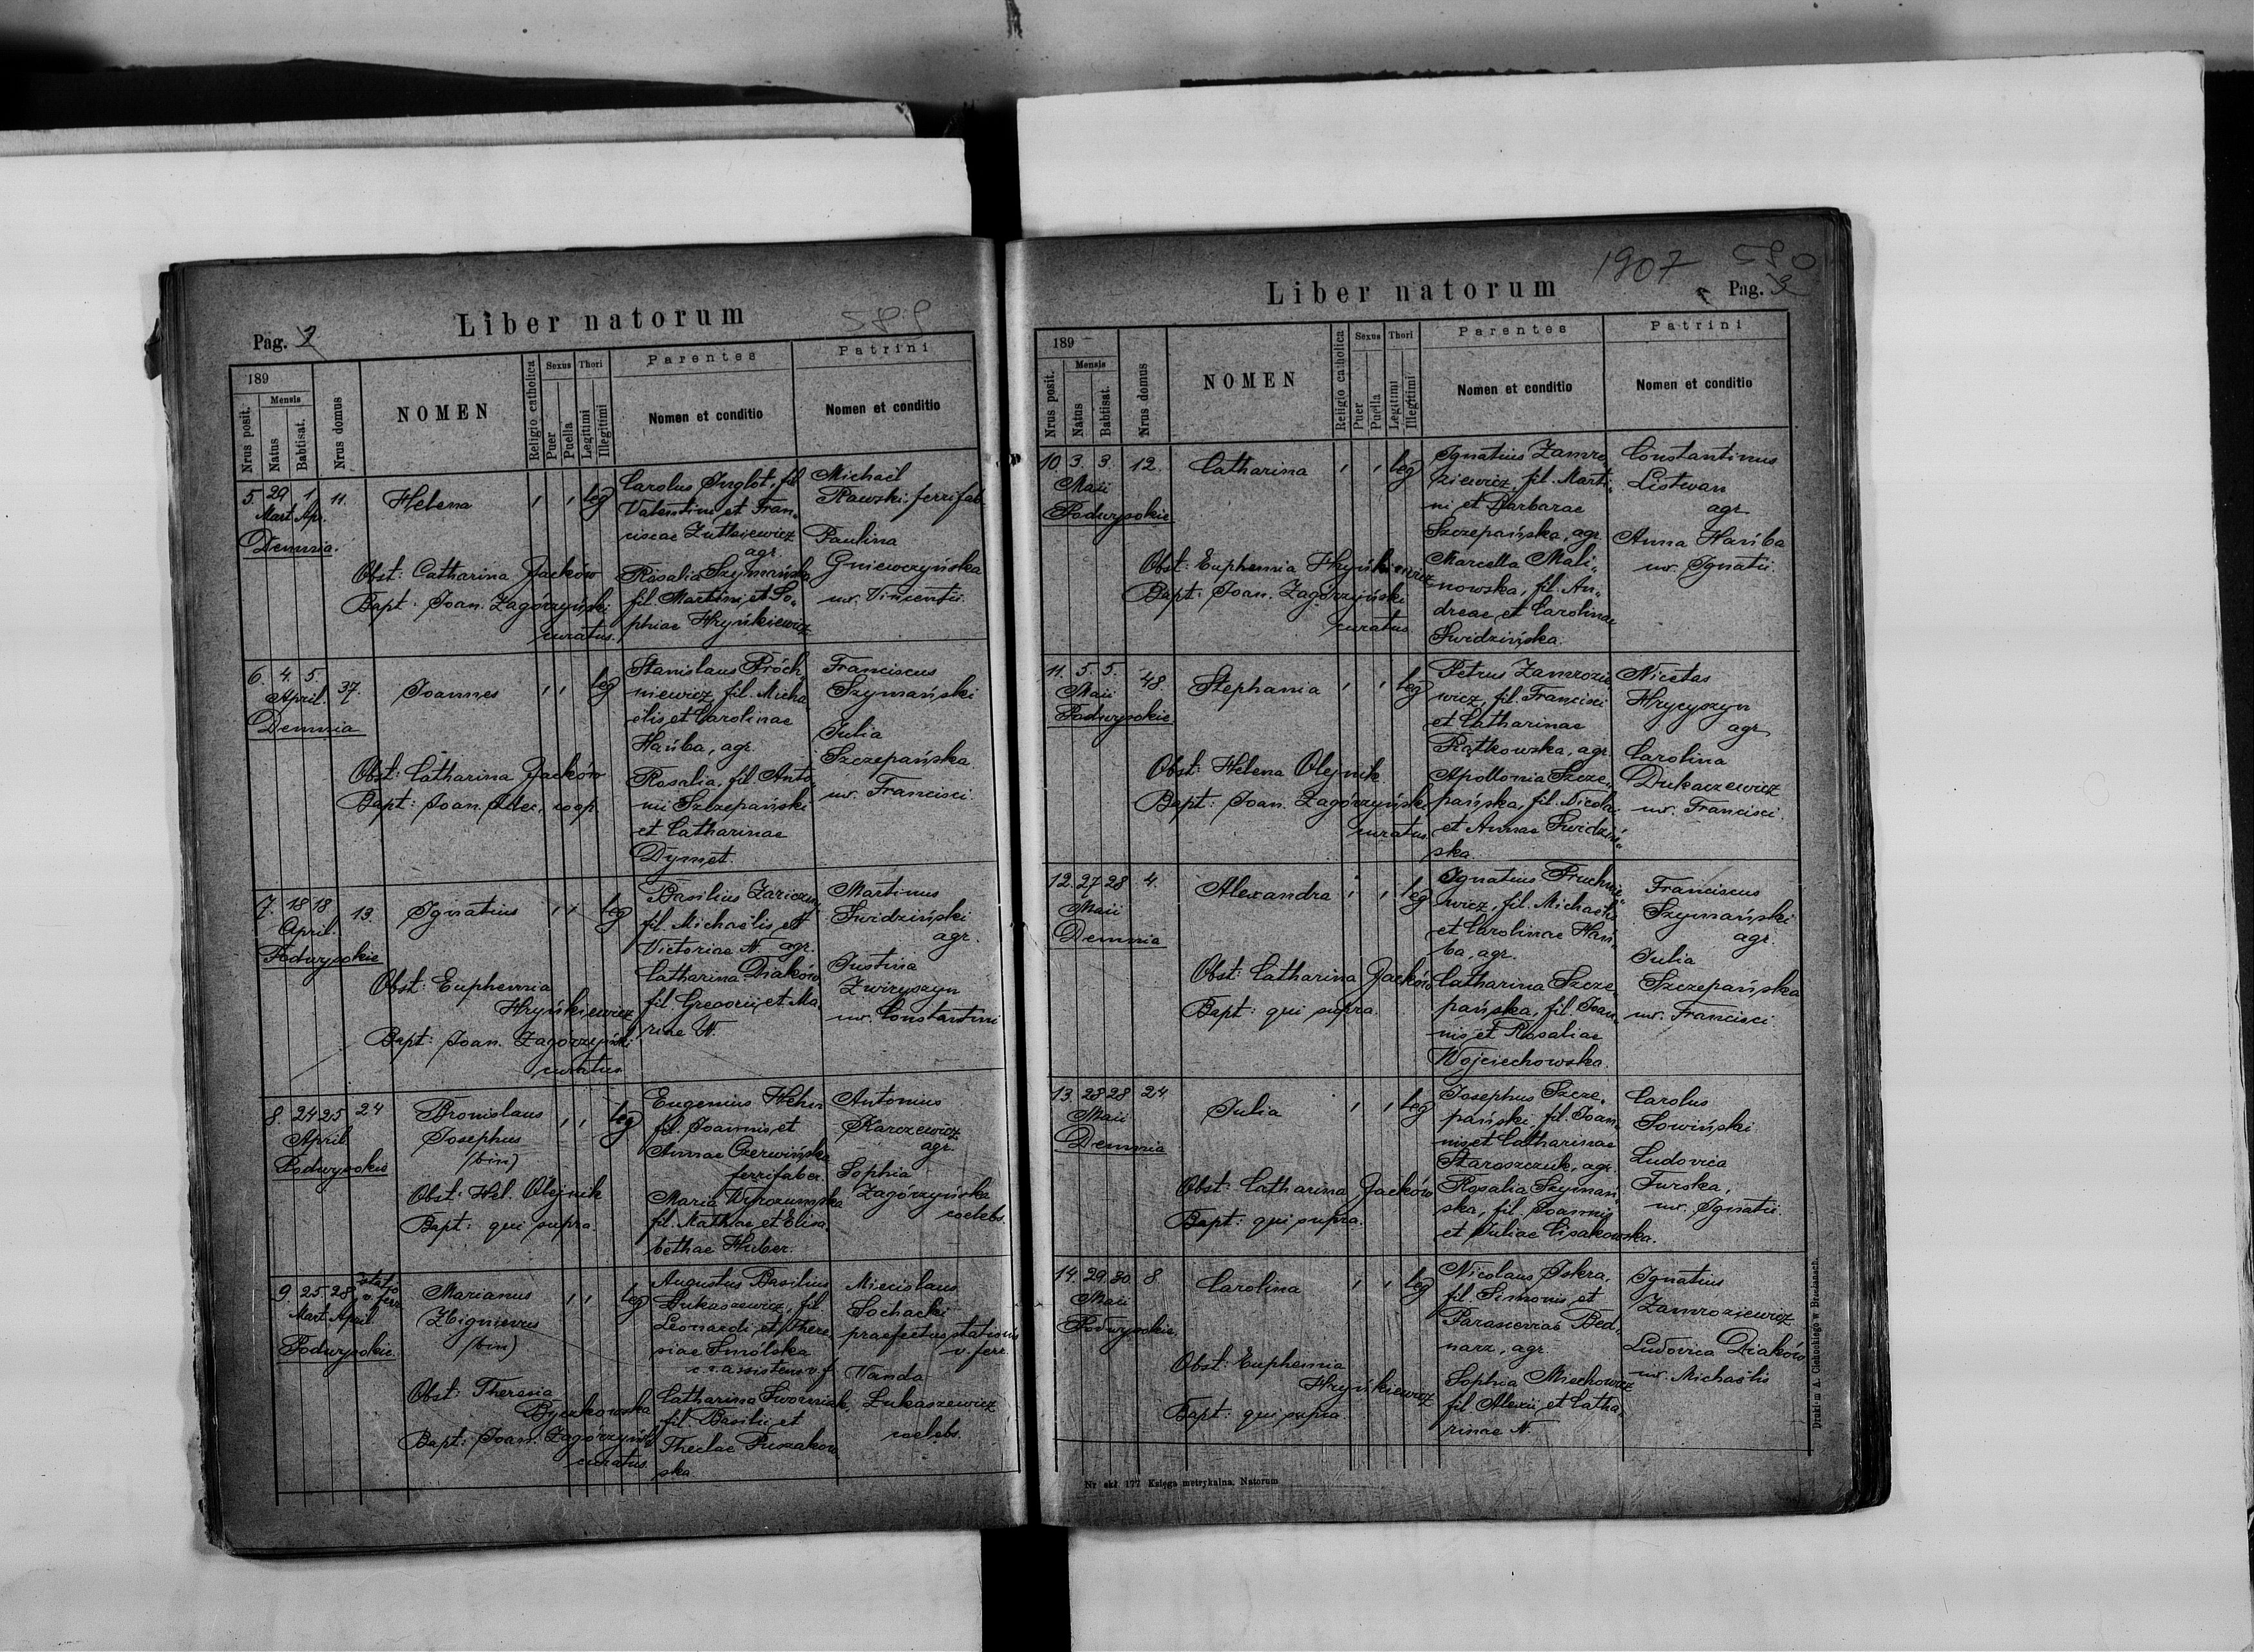 Liber natorum
589
Pag. 2
189
Nrus posit.
Mensis
Natus
Babtisat.
Nrus domus
NOMEN
Religio catholica
Sexus
Puer
Puella
Thori
Legitimi
Illegitimi
Parentes
Nomen et conditio
Patrini
Nomen et conditio
5. 29 1 11.
Mart. Ap.
Demnia.
Helena
leg
Obst: Catharina Jacków
Bapt: Joan. Zagórzyński
curatus.
Carolus Inglot, fil.
Valentini et Fran„
ciscae Zutkiewicz
agr.
Rosalia Szymańska
fil. Martini et So„
phiae Hryńkiewicz
Michaël
Rawski, ferrifab.
Paulina
Gniewczyńska
ux. Vincentii.
6. 4. 5. 37.
April.
Demnia
Joannes
leg
Obst: Catharina Jacków
Bapt: Joan. coop.
Stanislaus Próch„
niewicz, fil. Micha„
ëlis et Carolinae
Hańba, agr.
Rosalia, fil. Anto„
nii Szczepański
et Catharinae
Dymet.
Franciscus
Szymański
Julia
Szczepańska
ux. Francisci.
7. 18 18 13.
April.
Podwysokie
Ignatius
leg
Obst: Euphemia
Hryńkiewicz
Bapt: Joan. Zagórzyński
curatus
Basilius Zariczny
fil. Michaëlis et
Victoriae N. agr.
Catharina Diaków
fil. Gregorii et Ma„
riae N.
Martinus
Swidziński
agr.
Justina
Zwiryszyn
ux. Constantini
8. 24 25 24
April
Podwysokie
Bronislaus
Josephus
(bin)
leg
Obst: Hel. Olejnik
Bapt: qui supra.
Eugenius
fil. Joannis et
Annae Czerwińska
ferrifaber.
Maria Wyrozumska
fil. Mathiae et Elisa„
bethae Huber.
Antonius
Karczewicz
agr.
Sophia
Zagórzyńska
coelebs.
9. 25 28 statio
v. ferr.
Mart. April.
Podwysokie
Marianus
Zbignievus
(bin)
leg
Obst: Theresia
Byczkowska
Bapt: Joan. Zagórzyński
curatus.
Augustus Basilius
Łukaszewicz, fil.
Leonardi et There„
siae Smólska
c. r. assistens v. f.
Catharina Swoźniak,
fil. Basilii et
Theclae Puszakow
ska
Miecislaus
Sochacki
praefectus stationis
v. ferr.
Vanda
Łukaszewicz
coelebs.
1907
580
Liber natorum
Pag. 3
189
Nrus posit.
Mensis
Natus
Babtisat.
Nrus domus
NOMEN
Religio catholica
Sexus
Puer
Puella
Thori
Legitimi
Illegitimi
Parentes
Nomen et conditio
Patrini
Nomen et conditio
10. 3. 3. 12.
Maii
Podwysokie
Catharina
leg
Obst: Euphemia Hryńkiewicz
Bapt: Joan. Zagórzyński
curatus
Ignatius Zamro„
ziewicz, fil. Marti„
ni et Barbarae
Szczepańska, agr.
Marcella Mali„
nowska, fil. An„
dreae et Carolinae
Swidzińska.
Constantinus
Listwan
agr.
Anna Hańba
ux. Ignatii.
11. 5. 5. 48.
Maii
Podwysokie
Stephania
leg
Obst: Helena Olejnik
Bapt: Joan. Zagórzyński
curatus.
Petrus Zamrozie
wicz, fil. Francisci
et Catharinae
Piątkowska, agr.
Apollonia Szcze„
pańska, fil. Nicolai
et Annae Swidziń„
ska.
Nicetas
Hrycyszyn
agr.
Carolina
Dukaczewicz
ux. Francisci.
12. 27 28 4.
Maii
Demnia
Alexandra
leg
Obst: Catharina Jacków
Bapt: qui supra.
Ignatius Pruchnie„
wicz, fil. Michaëlis
et Carolinae Hań„
ba, agr.
Catharina Szcze„
pańska, fil. Joan„
nis et Rosaliae
Wojciechowska.
Franciscus
Szymański
agr.
Julia
Szczepańska
ux. Francisci.
13. 28 28 24
Maii
Demnia
Julia
leg
Obst: Catharina Jacków
Bapt: qui supra.
Josephus Szcze„
pański, fil. Joan„
nis et Catharinae
Staroszczuk, agr.
Rosalia Szymań„
ska, fil. Joannis
et Juliae Lisakowska.
Carolus
Sowiński
Ludovica
Furska,
ux. Ignatii.
14. 29. 30. 8.
Maii
Podwysokie.
Carolina
leg
Obst: Euphemia
Hryńkiewicz
Bapt: qui supra.
Nicolaus Iskra,
fil. Simonis et
Parasceviae Bed„
narz, agr.
Sophia Miechowicz
fil. Alexii et Catha„
rinae N.
Ignatius
Zamroziewicz
Ludovica Diaków
ux. Michaëlis
Nr skł. 177 Księga metrykalna. Natorum
Druki m A. Cichockiego w Brzeżanach.